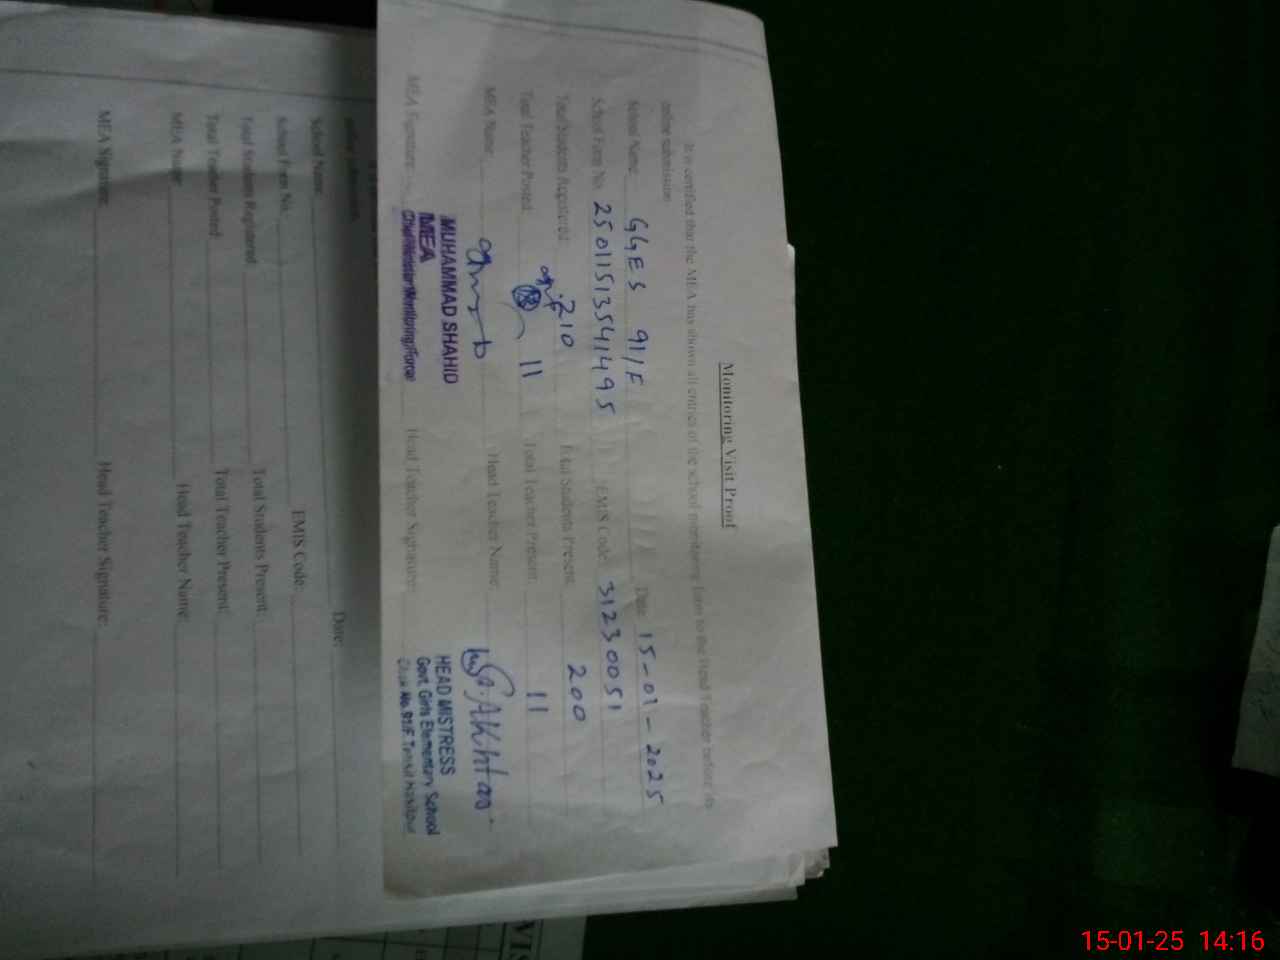 Monitoring Visit Proof
It is certified that the MEA has shown all entries of the school monitoring form to the Head Teacher before its
online submission
School Name: GGES 91/F Date: 15-01-2025
School Form No. 25011513541495 EMIS Code: 31230051
Total Students Registered: 210 Total Students Present: 200
Total Teacher Posted: 11 Total Teacher Present: 11
MEA Name: Head Teacher Name: Akhtar
MUHAMMAD SHAHID HEAD MISTRESS
MEA Govt. Girls Elementary School
MEA Signature: Chief Minister Monitoring Force Head Teacher Signature: Chak No. 91/F
School Name: Date:
School Form No: EMIS Code:
Total Students Registered: Total Students Present:
Total Teacher Posted: Total Teacher Present:
MEA Name: Head Teacher Name:
MEA Signature: Head Teacher Signature:
15-01-25 14:16